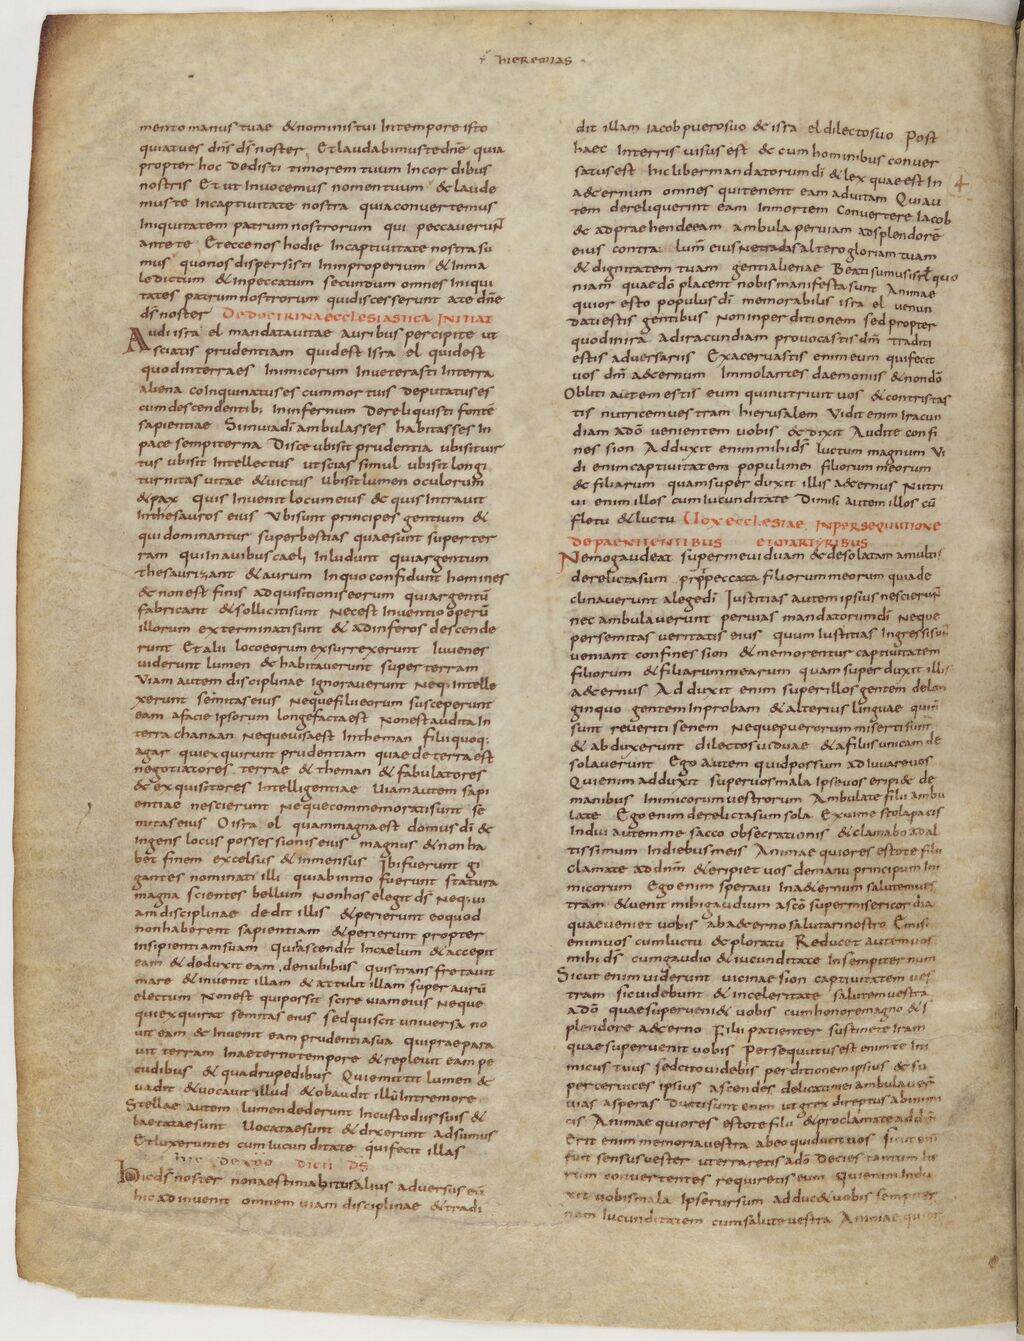 hieremias
mento manus tuae & nominis tui In tempore isto
quia tu es dns ds noster Et laudabimus te dne quia
propter hoc dedisti timorem tuum In cordibus
nostris Et ut Invocemus nomen tuum & laude
mus te Incaptivitate nostra quia convertemus
Iniquitatem patrum nostrorum qui peccaverunt
ante te Et ecce nos hodie Incaptivitate nostra su
mus quo nos dispersisti In Inproperium & In ma
ledictum & Inpeccatum secundum omnes Iniqui
tates patrum nostrorum qui discesserunt a te dne
ds noster De doctrina ecclesiastica
Audi isra el mandata vitae auribus percipite ut
sciatis prudentiam quid est Isra el quid est
quod In terra es Inimicorum Inveterasti In terra
aliena coInquinatus es cum mortuis deputatus es
cum descendentib; In Infernum Dereliquisti fonte
sapientiae Si In via di ambulasses habitasses In
pace sempiterna Disce ubi sit prudentia ubi sit vir
tus ubi sit Intellectus ut scias simul ubi sit longi
turnitas vitae & victus ubi sit lumen oculorum
& pax quis Invenit locum eius & quis Intravit
In thesauros eius Ubi sunt principes gentium &
qui dominantur super bestias quae sunt super ter
ram qui In avibus caeli Inludunt qui argentum
thesaurizant & aurum In quo confidunt homines
& non est finis adquisitionis eorum qui argentu
fabricant & solliciti sunt Nec est Inventio operu
illorum exterminati sunt & ad inferos descende
runt Et alii loco eorum exsurrexerunt Iuvenes
viderunt lumen & habitaverunt super terram
Viam autem disciplinae ignoraverunt Neq; Intelle
xerunt semitas eius Neque filii eorum susceperunt
eam a facie Ipsorum longe facta est Non est audita In
terra chanaan Neque visa est In theman filii quoq;
agar qui exquirunt prudentiam quae de terra est
negotiatores terrae & theman & fabulatores
& exquisitores Intelligentiae Viam autem sapi
entiae nescierunt Neque commemorati sunt se
mitas eius O isra el quam magna est domus di &
ingens locus possessionis eius magnus & non ha
bet finem excelsus & inmensus Ibi fuerunt gi
gantes nominati illi qui ab initio fuerunt statura
magna scientes bellum Non hos elegit ds Neq; vi
am disciplinae dedit illis & perierunt eo quod
non haberent sapientiam & perierunt propter
insipientiam suam Quis ascendit In caelum & accepit
eam & deduxit eam de nubibus quis transfretavit
mare & invenit illam & attulit illam super auru
electum Non est qui possit scire viam eius Neque
qui exquirat semitas eius sed qui scit universa no
vit eam & Invenit eam prudentia sua qui praepara
vit terram In aeterno tempore & replevit eam pe
cudibus & quadrupedibus Qui emittit lumen &
vadit & vocavit illud & obaudit illi In tremore
Stellae autem lumen dederunt In custodiis suis &
laetatae sunt Vocatae sunt & dixerunt adsumus
Et luxerunt ei cum Iucunditate qui fecit illas
Hic ds noster non aestimabitur alius adversus eu
hic adinvenit omnem viam disciplinae & tradi
dit illam Iacob puero suo & isra el dilecto suo Post
haec In terris visus est & cum hominibus conver
satus est hic liber mandatorum di & lex quae est In
aeternum omnes qui tenent eam ad vitam Qui au
tem dereliquerunt eam In mortem Convertere Iacob
& adprahende eam ambula per viam ad splendore
eius contra lum eius Ne tradas altero gloriam tuam
& dignitatem tuam genti alienae Beati sumus isrl quo
niam quae do placent nobis manifesta sunt Animae
quior esto populus di memorabilis isra el venun
dati estis gentibus Non In perditionem sed propter
quod In ira ad iracundiam provocastis dm traditi
estis adversariis Exacervastis enim eum qui fecit
vos dm aeternum Immolantes daemoniis & non do
Obliti autem estis eum qui nutrivit vos & contristas
tis nutricem vestram hierusalem Vidit enim Iracun
diam a do venientem vobis & dixit Audite confi
nes sion Adduxit enim mihi ds luctum magnum Vi
di enim captivitatem populi mei filiorum meorum
& filiarum quam superduxit illis aeternus Nutri
vi enim illos cum Iucunditate Dimisi autem illos cu
fletu & luctu Vox ecclesiae In persequutione
de paenitentibus et martyribus
Nemo gaudeat super me viduam & desolatam a multis
derelicta sum propter peccata filiorum meorum quia de
clinaverunt a lege di Iustitias autem ipsius nescierunt
nec ambulaverunt per vias mandatorum di Neque
per semitas veritatis eius quum Iustitias Ingressi sunt
veniant confines sion & memorentur captivitatem
filiorum & filiarum mearum quam superduxit illis
aeternus Adduxit enim super illos gentem de lon
ginquo gentem Inprobam & alterius linguae qui non
sunt reveriti senem Neque puerorum miserti sunt
& abduxerunt dilectos viduae & a filiis unicam de
solaverunt Ego autem quid possum adIuvare vos
Qui enim adduxit super vos mala Ipse vos eripi& de
manibus Inimicorum vestrorum Ambulate filii ambu
late Ego enim derelicta sum sola Exui me stola pacis
Indui autem me sacco obsecrationis & clamabo ad al
tissimum In diebus meis Animae quiores estote filii
clamate ad dnm & eripiet vos de manu principum Ini
micorum Ego enim speravi In aeternum salutem ves
tram & venit mihi gaudium a sco super misericordia
quae veniet vobis ab aeterno salutari nostro Emisi
enim vos cum luctu & ploratu Reducet autem vos
mihi ds cum gaudio & iucunditate In sempiternum
Sicut enim viderunt vicinae sion captivitatem ves
tram sic videbunt & in celeritate salutem vestra
a do quae superveni& vobis cum honore magno & s
plendore aeterno Filii patienter sustinete Iram
quae supervenit vobis Persequutus est enim te Ini
micus tuus sed cito videbis perditionem ipsius & su
per cervices ipsius ascendes delicati mei ambulaverunt
vias asperas Ducti sunt enim ut grex direptus ab inimi
cis Animae quiores estote filii & proclamate ad dnm
Erit enim memoria vestra ab eo qui ducit vos sicut enim
fuit sensus vester ut erraretis a do Decies tantum ite
rum convertentes requiretis eum Qui enim Indu
xit vobis mala Ipse rursum adducet vobis sempiter
nam Iucunditatem cum salute vestra Animae quior